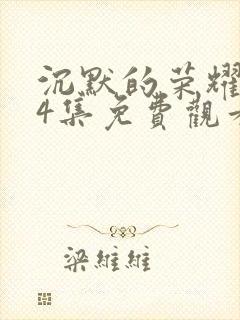 沉默的荣耀
4集免費觀
梁維維